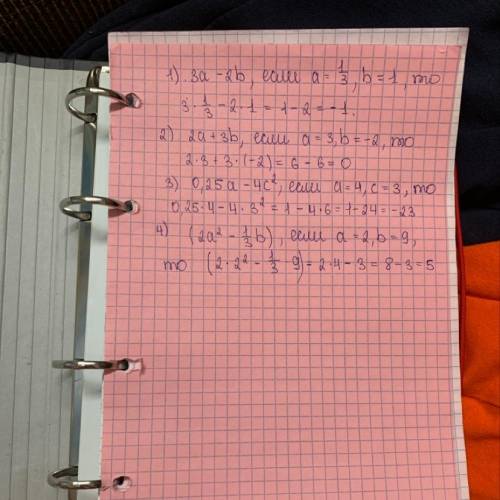 1) 3a - 2b, если a = 1/3, b = 1, то
3 · 1/3 - 2 · 1 = 1 - 2 = -1.
2) 2a + 3b, если a = 3, b = -2, то
2 · 3 + 3 · (-2) = 6 - 6 = 0
3) 0,25a - 4c², если a = 4, c = 3, то
0,25 · 4 - 4 · 3² = 1 - 4 · 6 = 1 - 24 = -23
4) (2a² - 1/3 b), если a = 2, b = 9,
то (2 · 2² - 1/3 · 9) = 2 · 4 - 3 = 8 - 3 = 5